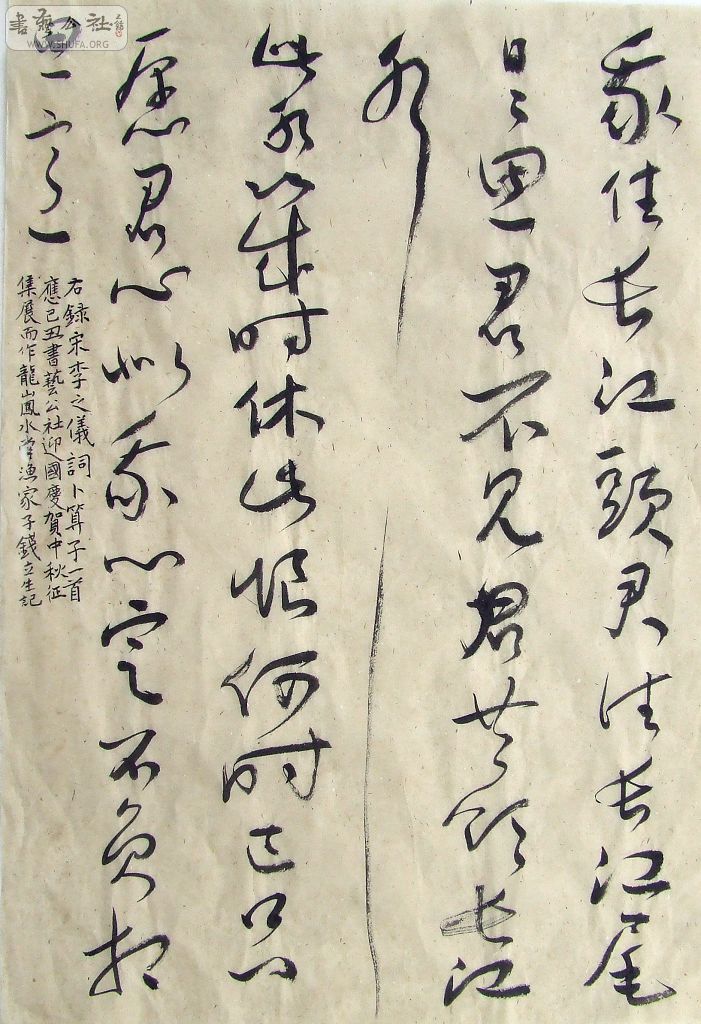 我住长江頭君住长江尾
日〻思君不见君共饮长江
水
此水幾时休此恨何时已只
愿君心似我心定不负相
思意
右録宋李之儀詞卜算子一首
應己丑書藝公社迎國慶賀中秋征
集展而作龍山鳳水堂漁家子錢立生記
書藝公社
WWW.SHUFA.ORG